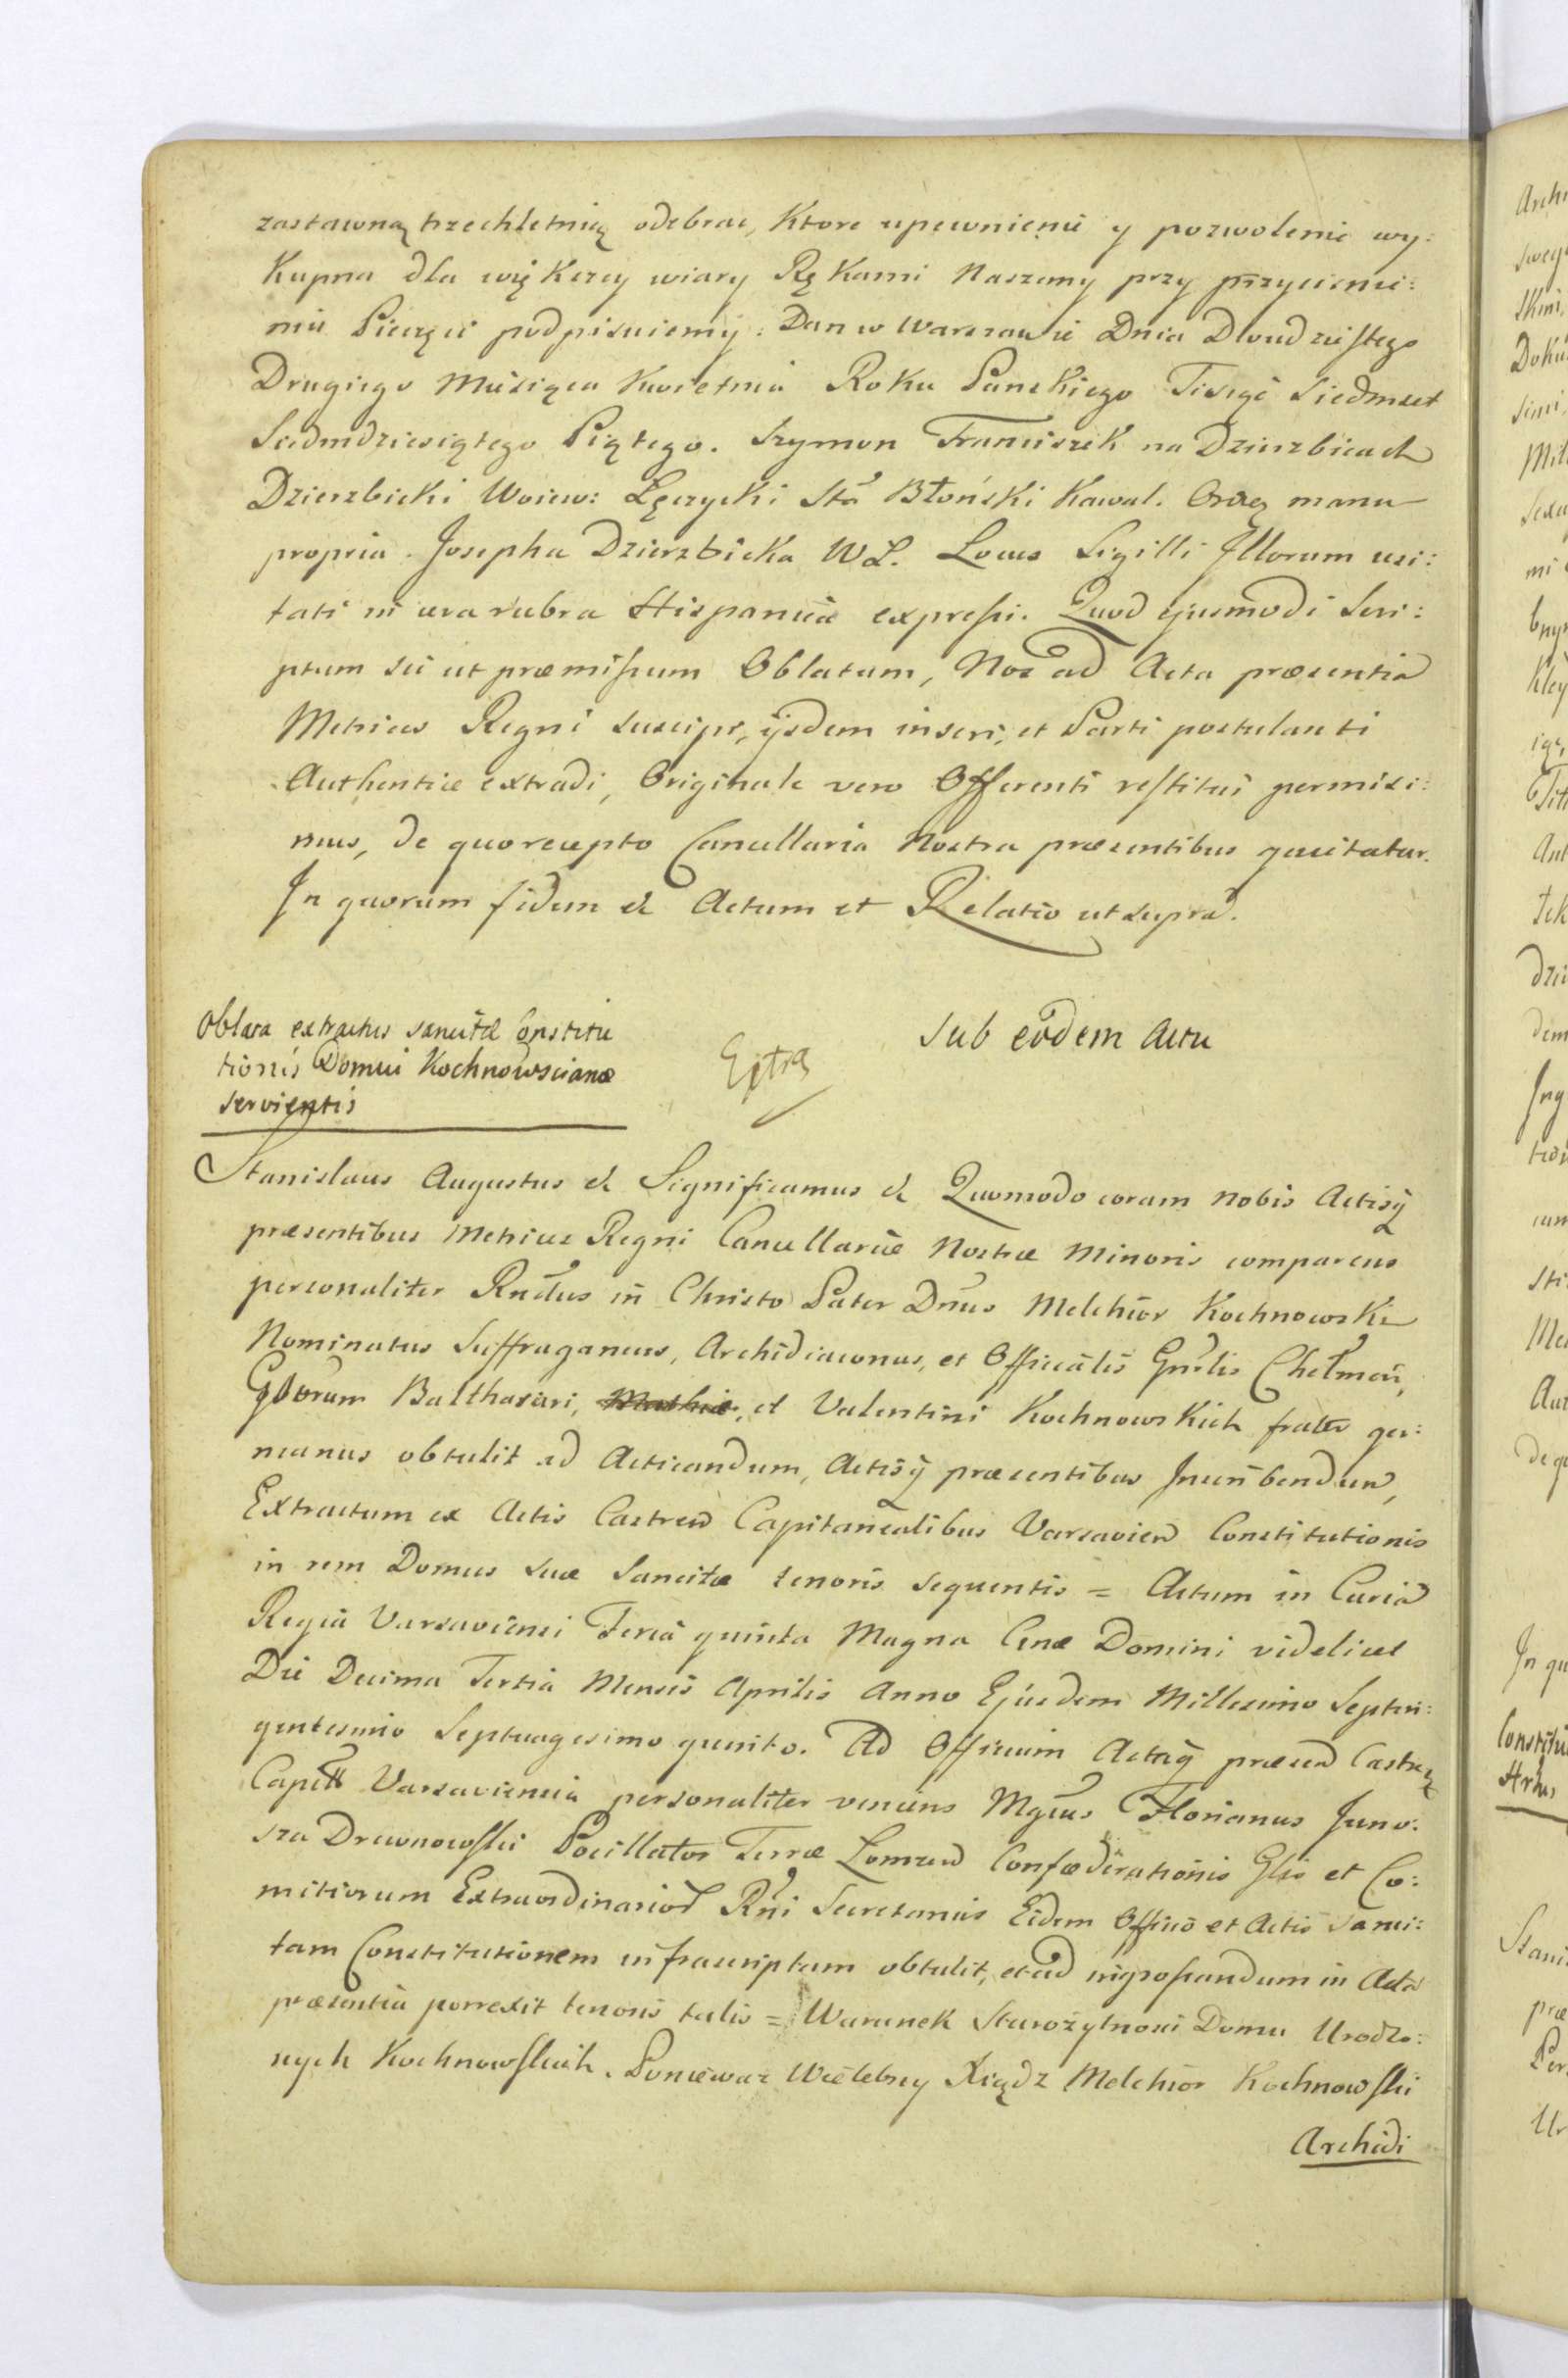 zastawną trzechletnią odebrac, Ktore upewnienie y pozwolenie wy:
Kupna dla większey wiary RęKami Naszemy przy przycisnie:
niu Pieczęci podpisuiemy: Dan w Warszawie Dnia Dwudziestego
Drugiego Miesiąca Kwietnia Roku Panskiego Tisiąc Siedmset
Siedmdziesiątego Piątego. Szymon Franciszek na Dzierzbicach
Dzierzbicki Woiew: Łęczycki Sta Błoński Kawal. Orię manu
propria. Josepha Dzierzbicka WŁ. Locus Sigilli Illorum usi:
tati in cera rubra Hispanica expressi. Quod ejusmodi Scri:
ptum sic ut præmissum Oblatum, Nos ad Acta præsentia
Metrices Regni suscipi, ijsdem inseri, et Parti postulanti
Authentice extradi, Originale vero Offerenti restitui permisi:
mus, de quo recepto Cancellaria Nostra præsentibus quietatur.
In quorum fidem & Actum et Relatio ut supra.
Oblata extractus sancitæ Constitu
tionis Domui Kochnowscianæ
servientis
Extra
Sub eodem Actu
Stanislaus Augustus & Significamus & Quomodo coram nobis Actisq
præsentibus Metrices Regni Cancellariæ Nostræ Minoris comparens
personaliter Rndus in Christo Pater Dnus Melchior Kochnowski
Nominatus Suffraganeus, Archidiaconus, et Officialis Gnrlis Chełmen,
Gsorum Balthasari, Mathiæ, et Valentini Kochnowskich frater ger:
manus obtulit ad Acticandum, Actisq præsentibus Inscribendum,
Extractum ex Actis Castren Capitanealibus Varsavien Constitutionis
in rem Domus suæ Sancitæ tenoris sequentis = Actum in Curia
Regia Varsaviensi Feria quinta Magna Cenæ Domini videlicet
Die Decima Tertia Mensis Aprilis Anno Ejusdem Millesimo Septin:
gentesimo Septuagesimo quinto. Ad Officium Actaq præsen Castren
Capitt Varsaviensia personaliter veniens Mgcus Florianus Juno:
sza Drewnowski Pocillator Terræ Lomzen Confæderationis Glis et Co:
mitiorum Extraordinarior Rni Secretarius Eidem Officio et Actis Sanci:
tam Constitutionem infrascriptam obtulit, et ad ingrossandum in Acta
præsentia porrexit tenoris talis = Warunek Starożytnosci Domu Urodzo:
nych Kochnowskich. Poniewaz Wielebny Xiądz Melchior Kochnowski
Archidi